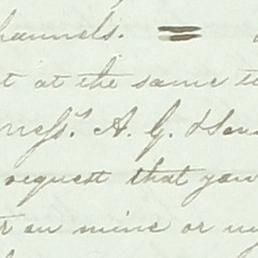 hannels. =
t at the same t
mess^rs. A. G. Hen
request that you
r on mine or my